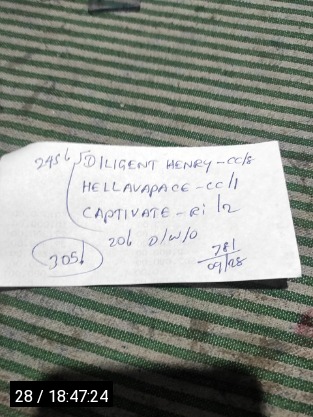 245/- DILIGENT HENRY - CC/8
HELLAVAPACE - CC/1
CAPTIVATE - Ri/2
20/- D/W/O
305/-
781
09/28
28 / 18:47:24